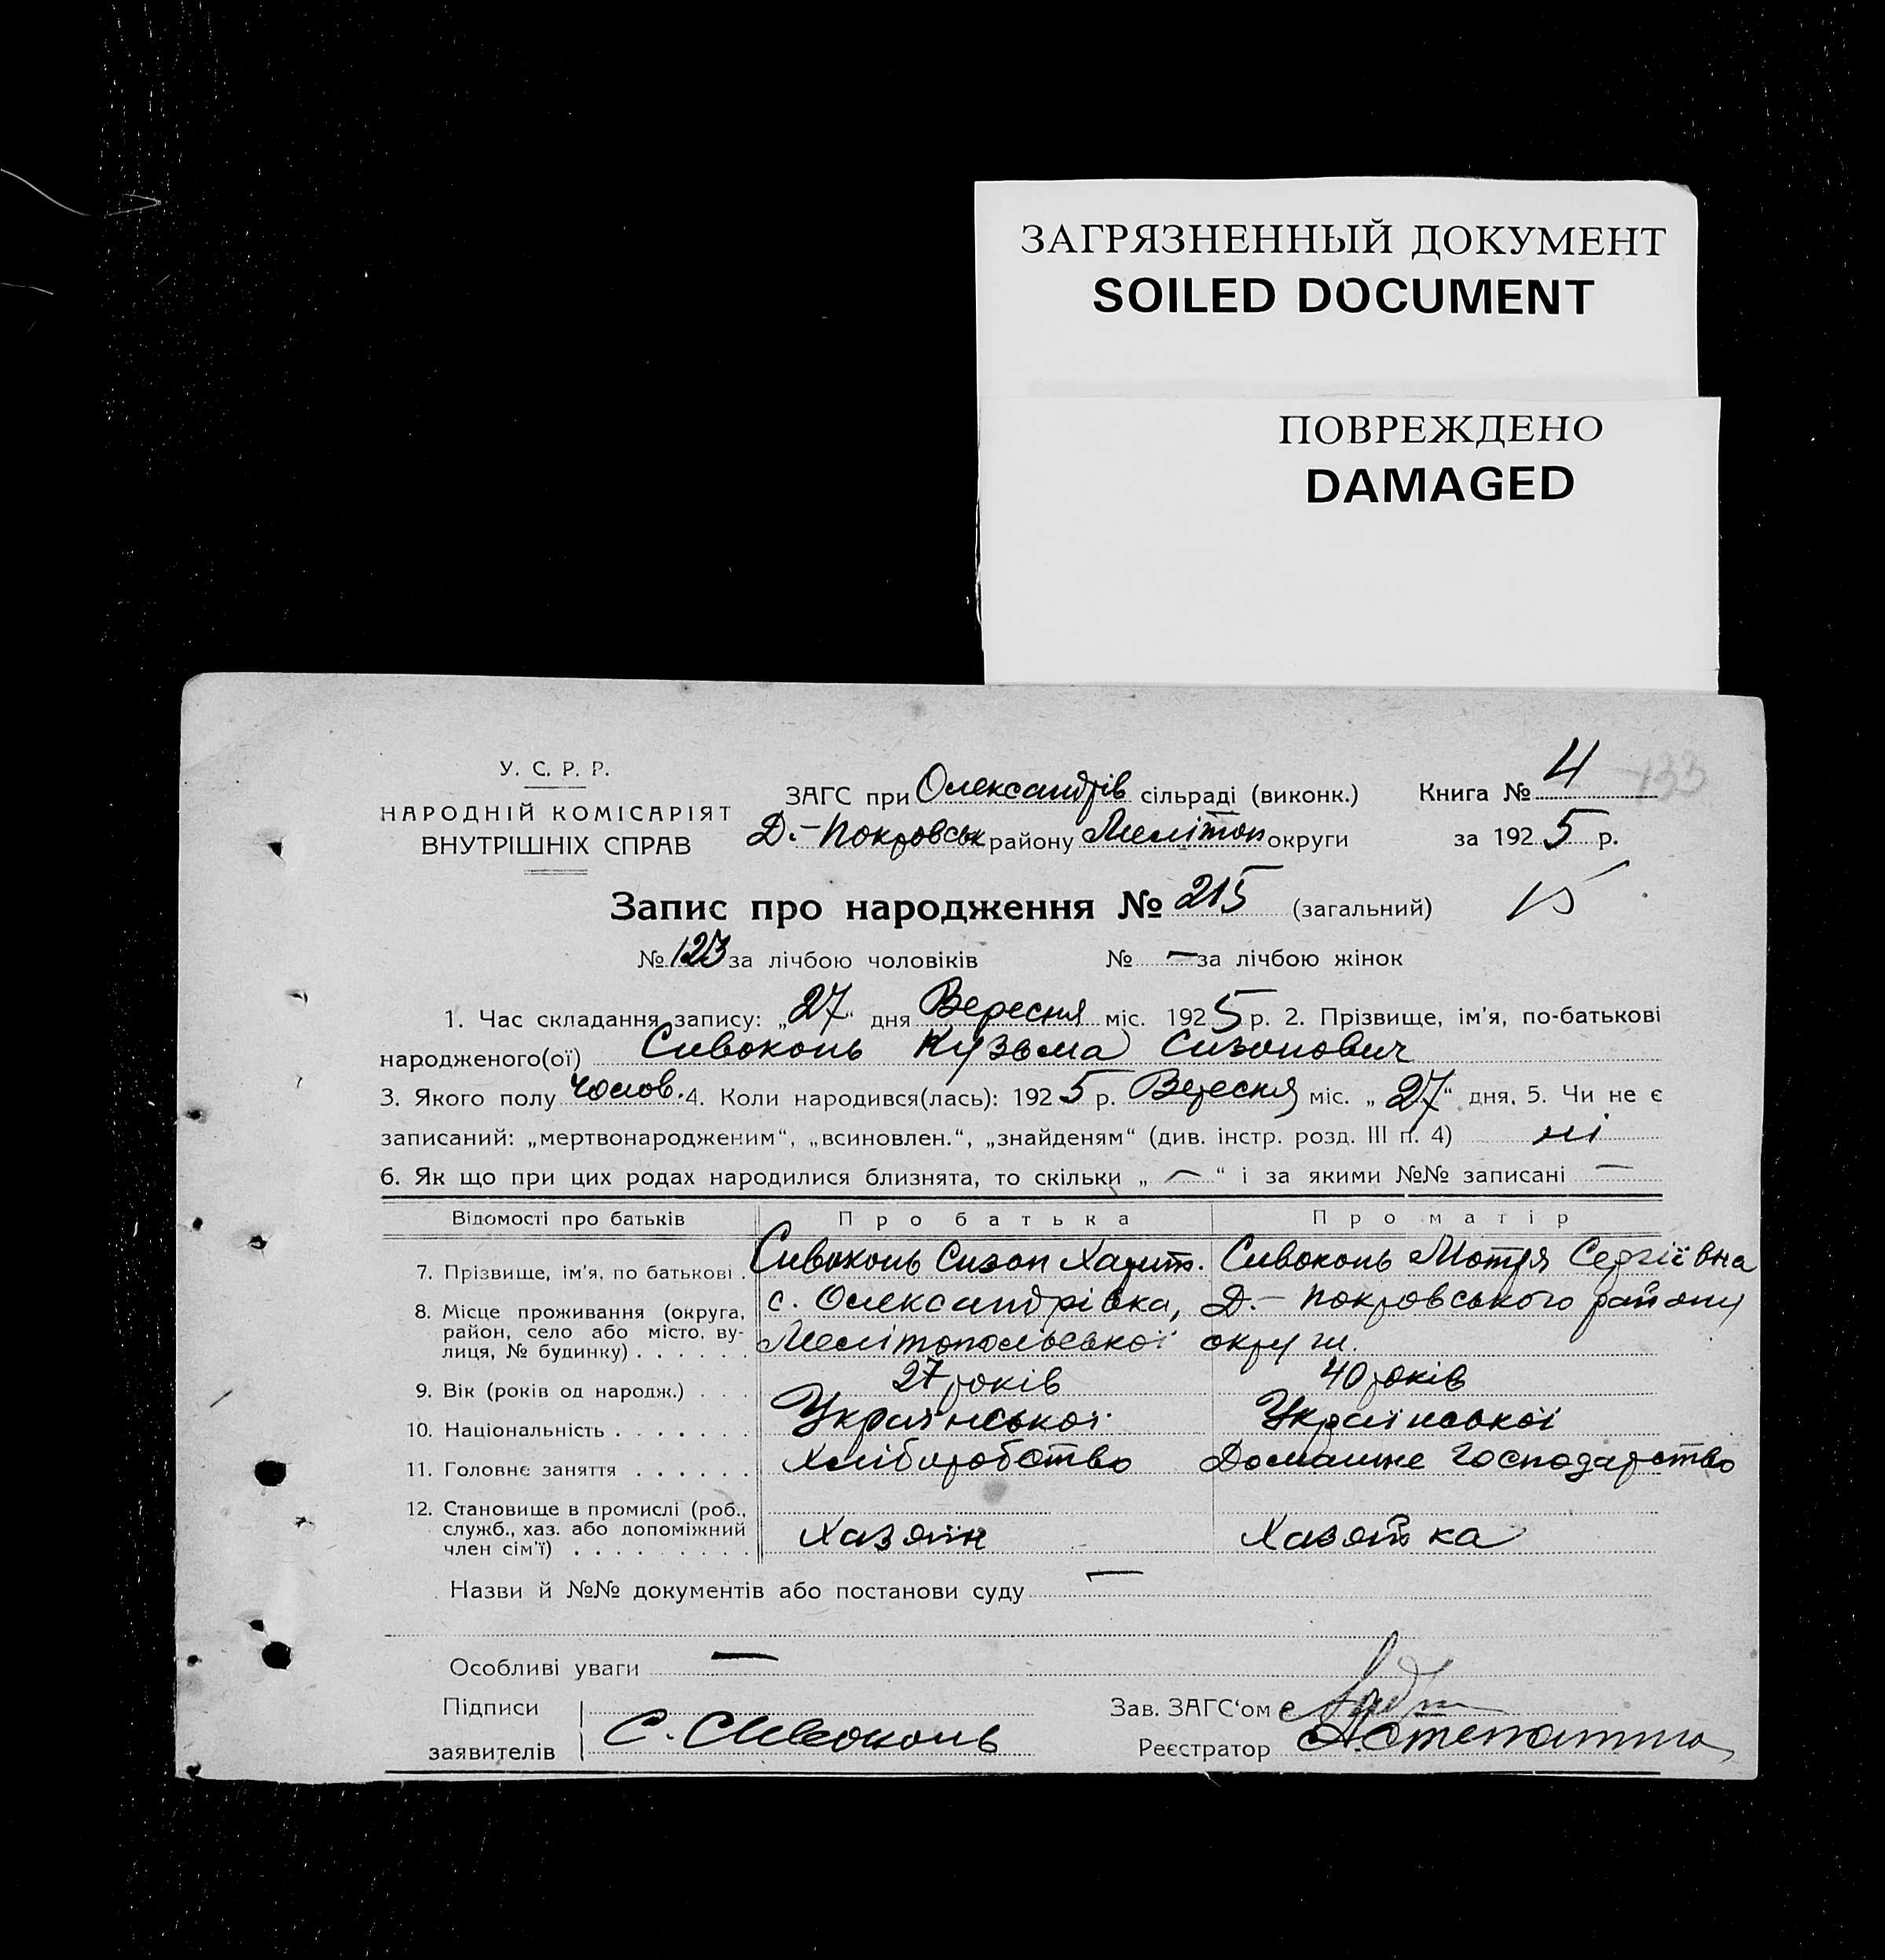 ЗАГРЯЗНЕННЫЙ ДОКУМЕНТ
SOILED DOCUMENT
ПОВРЕЖДЕНО
DAMAGED
У. С. Р. Р.
НАРОДНІЙ КОМІСАРІЯТ
ВНУТРІШНІХ СПРАВ
ЗАГС при Олександрів сільраді (виконк.) Книга № 4 133
Д.-Покровськ району Мелітоп округи за 1925 р.
Запис про народження № 215 (загальний) 15
№ 123 за лічбою чоловіків № — за лічбою жінок
1. Час складання запису: „27“ дня Вересня міс. 1925 р. 2. Прізвище, ім'я, по-батькові
народженого(ої) Сивоконь Кузьма Сизонович
3. Якого полу чолов. 4. Коли народився(лась): 1925 р. Вересня міс. „27“ дня. 5. Чи не є
записаний: „мертвонародженим“, „всиновлен.“, „знайденям“ (див. інстр. розд. III п. 4) ні
6. Як що при цих родах народилися близнята, то скільки „—“ і за якими №№ записані —
Відомості про батьків Про батька Про матір
7. Прізвище, ім'я, по батькові . Сивоконь Сизон Харит. Сивоконь Мотря Сергіївна
8. Місце проживання (округа, с. Олександрівка, Д.-Покровського району
район, село або місто, ву-
лиця, № будинку) . . . . . . Мелітопольської округи.
9. Вік (років од народж.) . . . 27 років 40 років
10. Національність . . . . . . . Української Української
11. Головне заняття . . . . . . Хліборобство Домашне господарство
12. Становище в промислі (роб.,
служб., хаз. або допоміжний
член сім'ї) . . . . . . . . . Хазяїн Хазяйка
Назви й №№ документів або постанови суду —
Особливі уваги —
Підписи
заявителів С. Сивоконь
Зав. ЗАГС'ом
Реєстратор